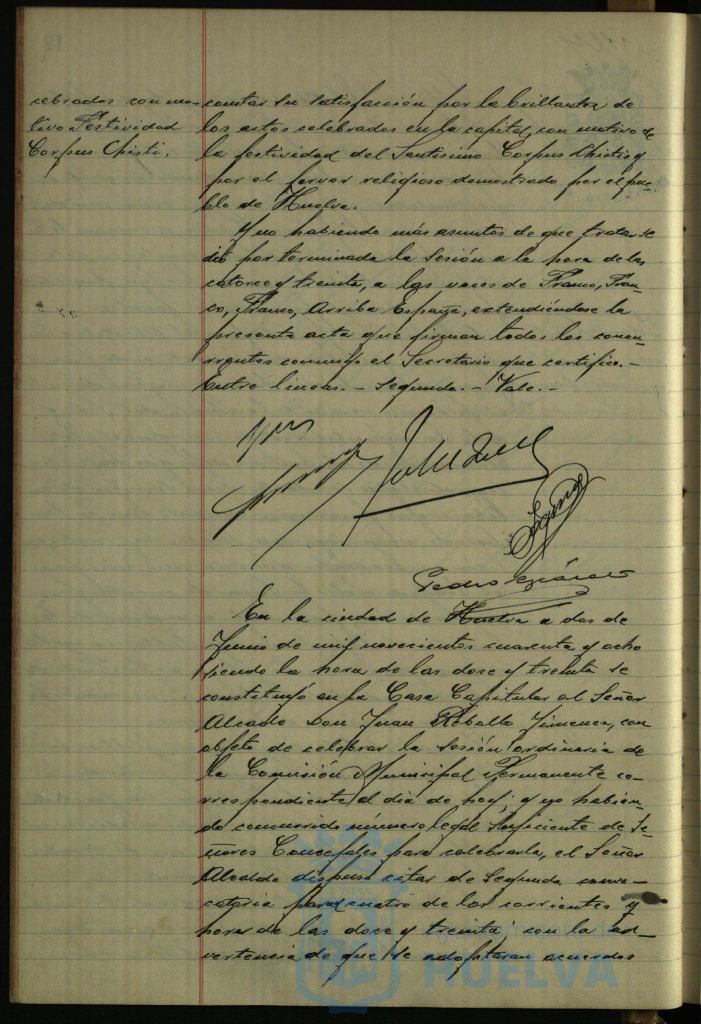 cebrados con mo-
tivo Festividad
Corpus Christi.
constar su satisfacción por la brillantez de
los actos celebrados en la capital, con motivo de
la festividad del Santísimo Corpus Christi y
por el fervor religioso demostrado por el pue-
blo de Huelva.
Y no habiendo más asuntos de que tratar se
dió por terminada la sesión a la hora de las
catorce y treinta, a las voces de Franco, Fran-
co, Franco, Arriba España, extendiéndose la
presente acta que firman todos los concu-
rrentes conmigo el Secretario que certifico.-
Entre lineas.- Segunda.- Vale.-
Pedro
En la ciudad de Huelva a dos de
Junio de mil novecientos cuarenta y ocho
siendo la hora de las doce y treinta se
constituyó en la Casa Capitular el Señor
Alcalde Don Juan Rebollo Jimenez, con
objeto de celebrar la sesión ordinaria de
la Comisión Municipal Permanente co-
rrespondiente al dia de hoy; y no habien-
do concurrido número legal suficiente de Se-
ñores Concejales para celebrarla, el Señor
Alcalde dispuso citar de Segunda convo-
catoria para cuatro de los corrientes y
hora de las doce y treinta; con la ad-
vertencia de que se adoptaran acuerdos
HUELVA